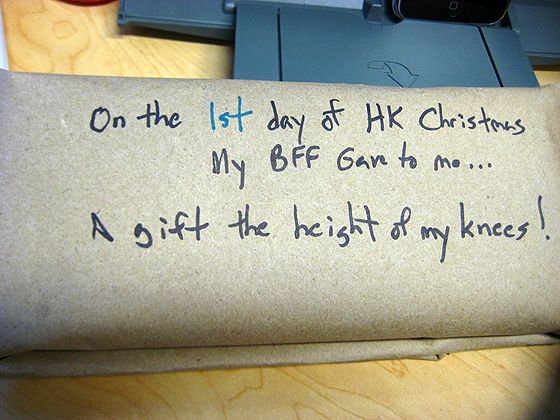 On the 1st day of HK Christmas
My BFF Gave to me...
A gift the height of my knees!